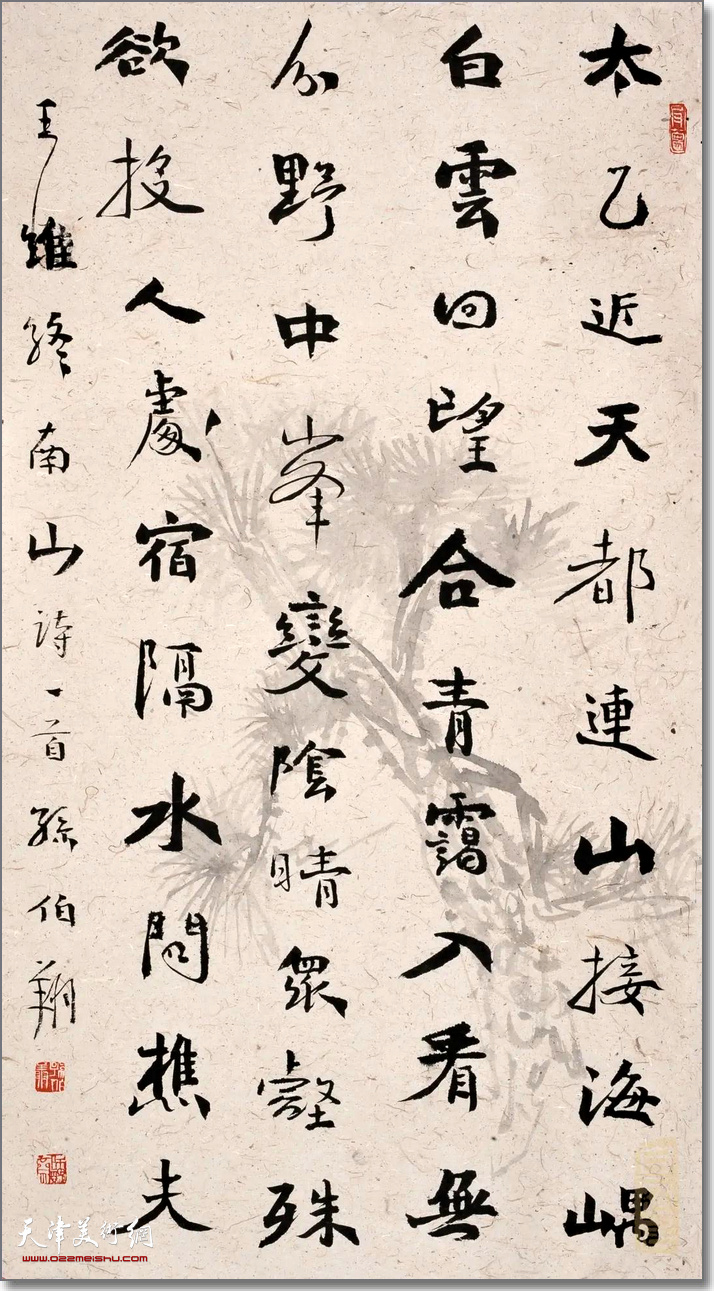 太乙近天都連山接海嵎
白雲回望合青靄入看無
分野中峯變陰晴眾壑殊
欲投人處宿隔水問樵夫
王維終南山詩一首孫伯翔
天津美術網
www.022meishu.com